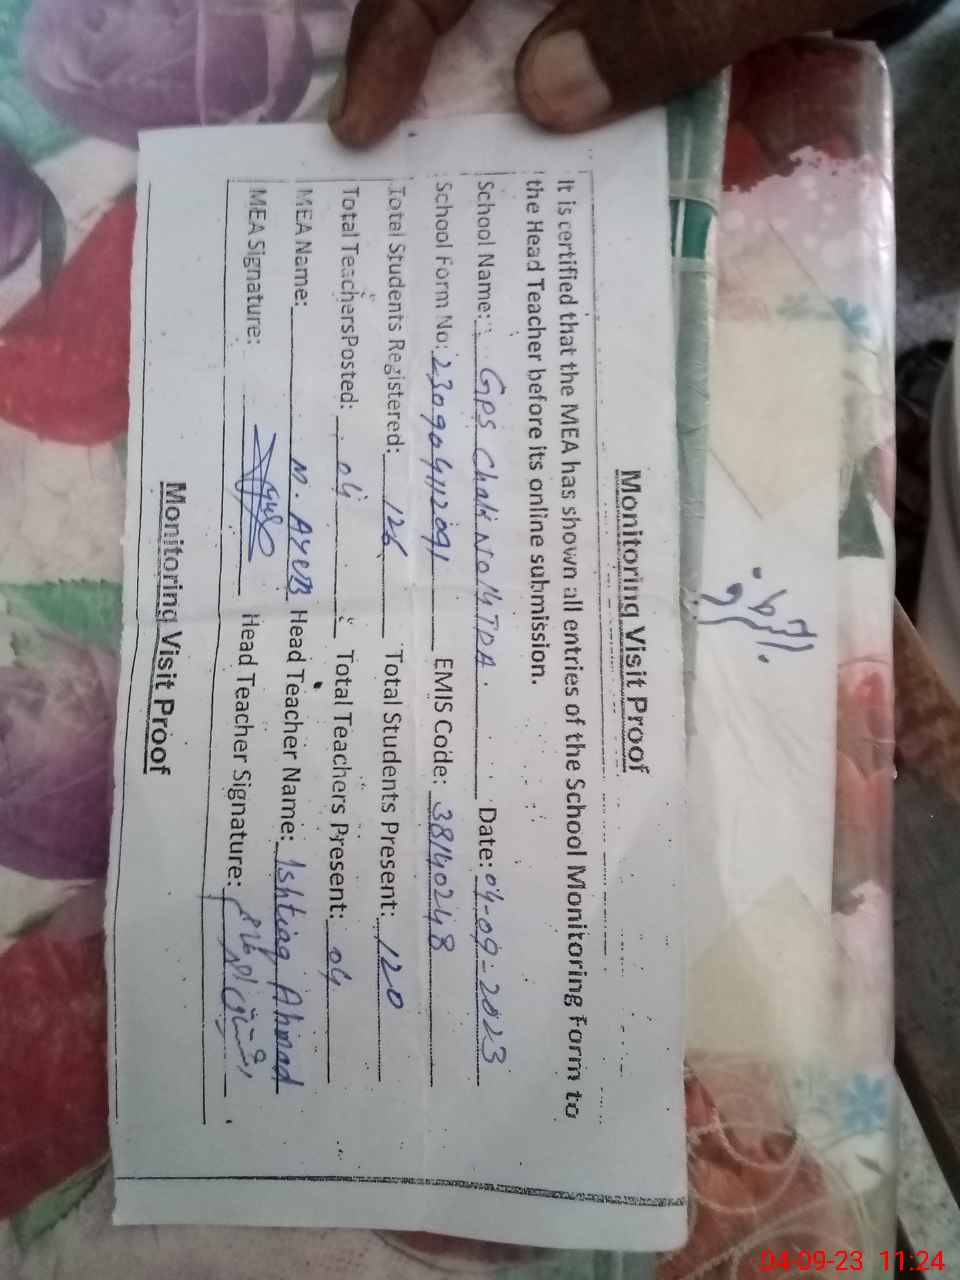 Monitoring Visit Proof
It is certified that the MEA has shown all entries of the School Monitoring Form to
the Head Teacher before its online submission.
School Name: GPS Chak No 14 TDA. Date: 04-09-2023
School Form No: 230904112091 EMIS Code: 38140248
Total Students Registered: 126 Total Students Present: 120
Total TeachersPosted: 04 Total Teachers Present: 04
MEA Name: M. Ayub Head Teacher Name: Ishtiaq Ahmad
MEA Signature: Head Teacher Signature:
Monitoring Visit Proof
04-09-23 11:24